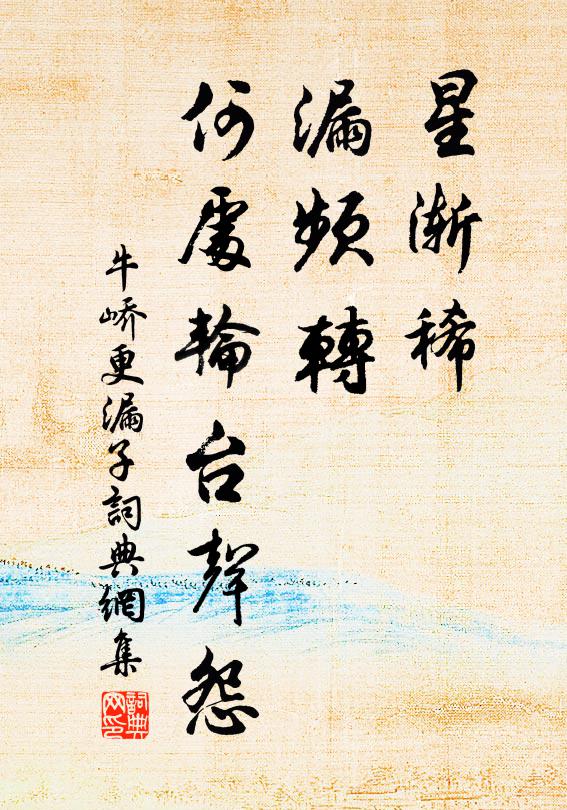 星漸稀
漏頻轉
何處輪台聲怨
牛嶠更漏子詞典網集
詞典
网印